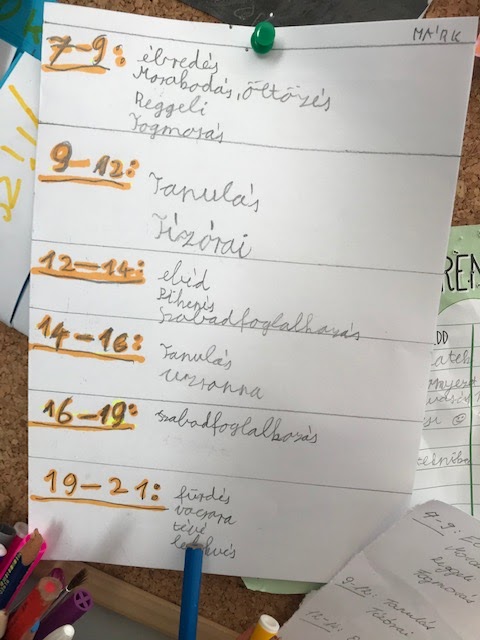 MÁRK
7-9:
ébredés
Mosakodás, öltözés
Reggeli
Fogmosás
9-12:
Tanulás
Tízórai
12-14:
ebéd
Pihenés
szabadfoglalkozás
14-16:
Tanulás
uzsonna
16-19:
szabadfoglalkozás
19-21:
fürdés
vacsora
tévé
REN
7-9:
Reggeli
Fogmosás
9-12: Tanulás